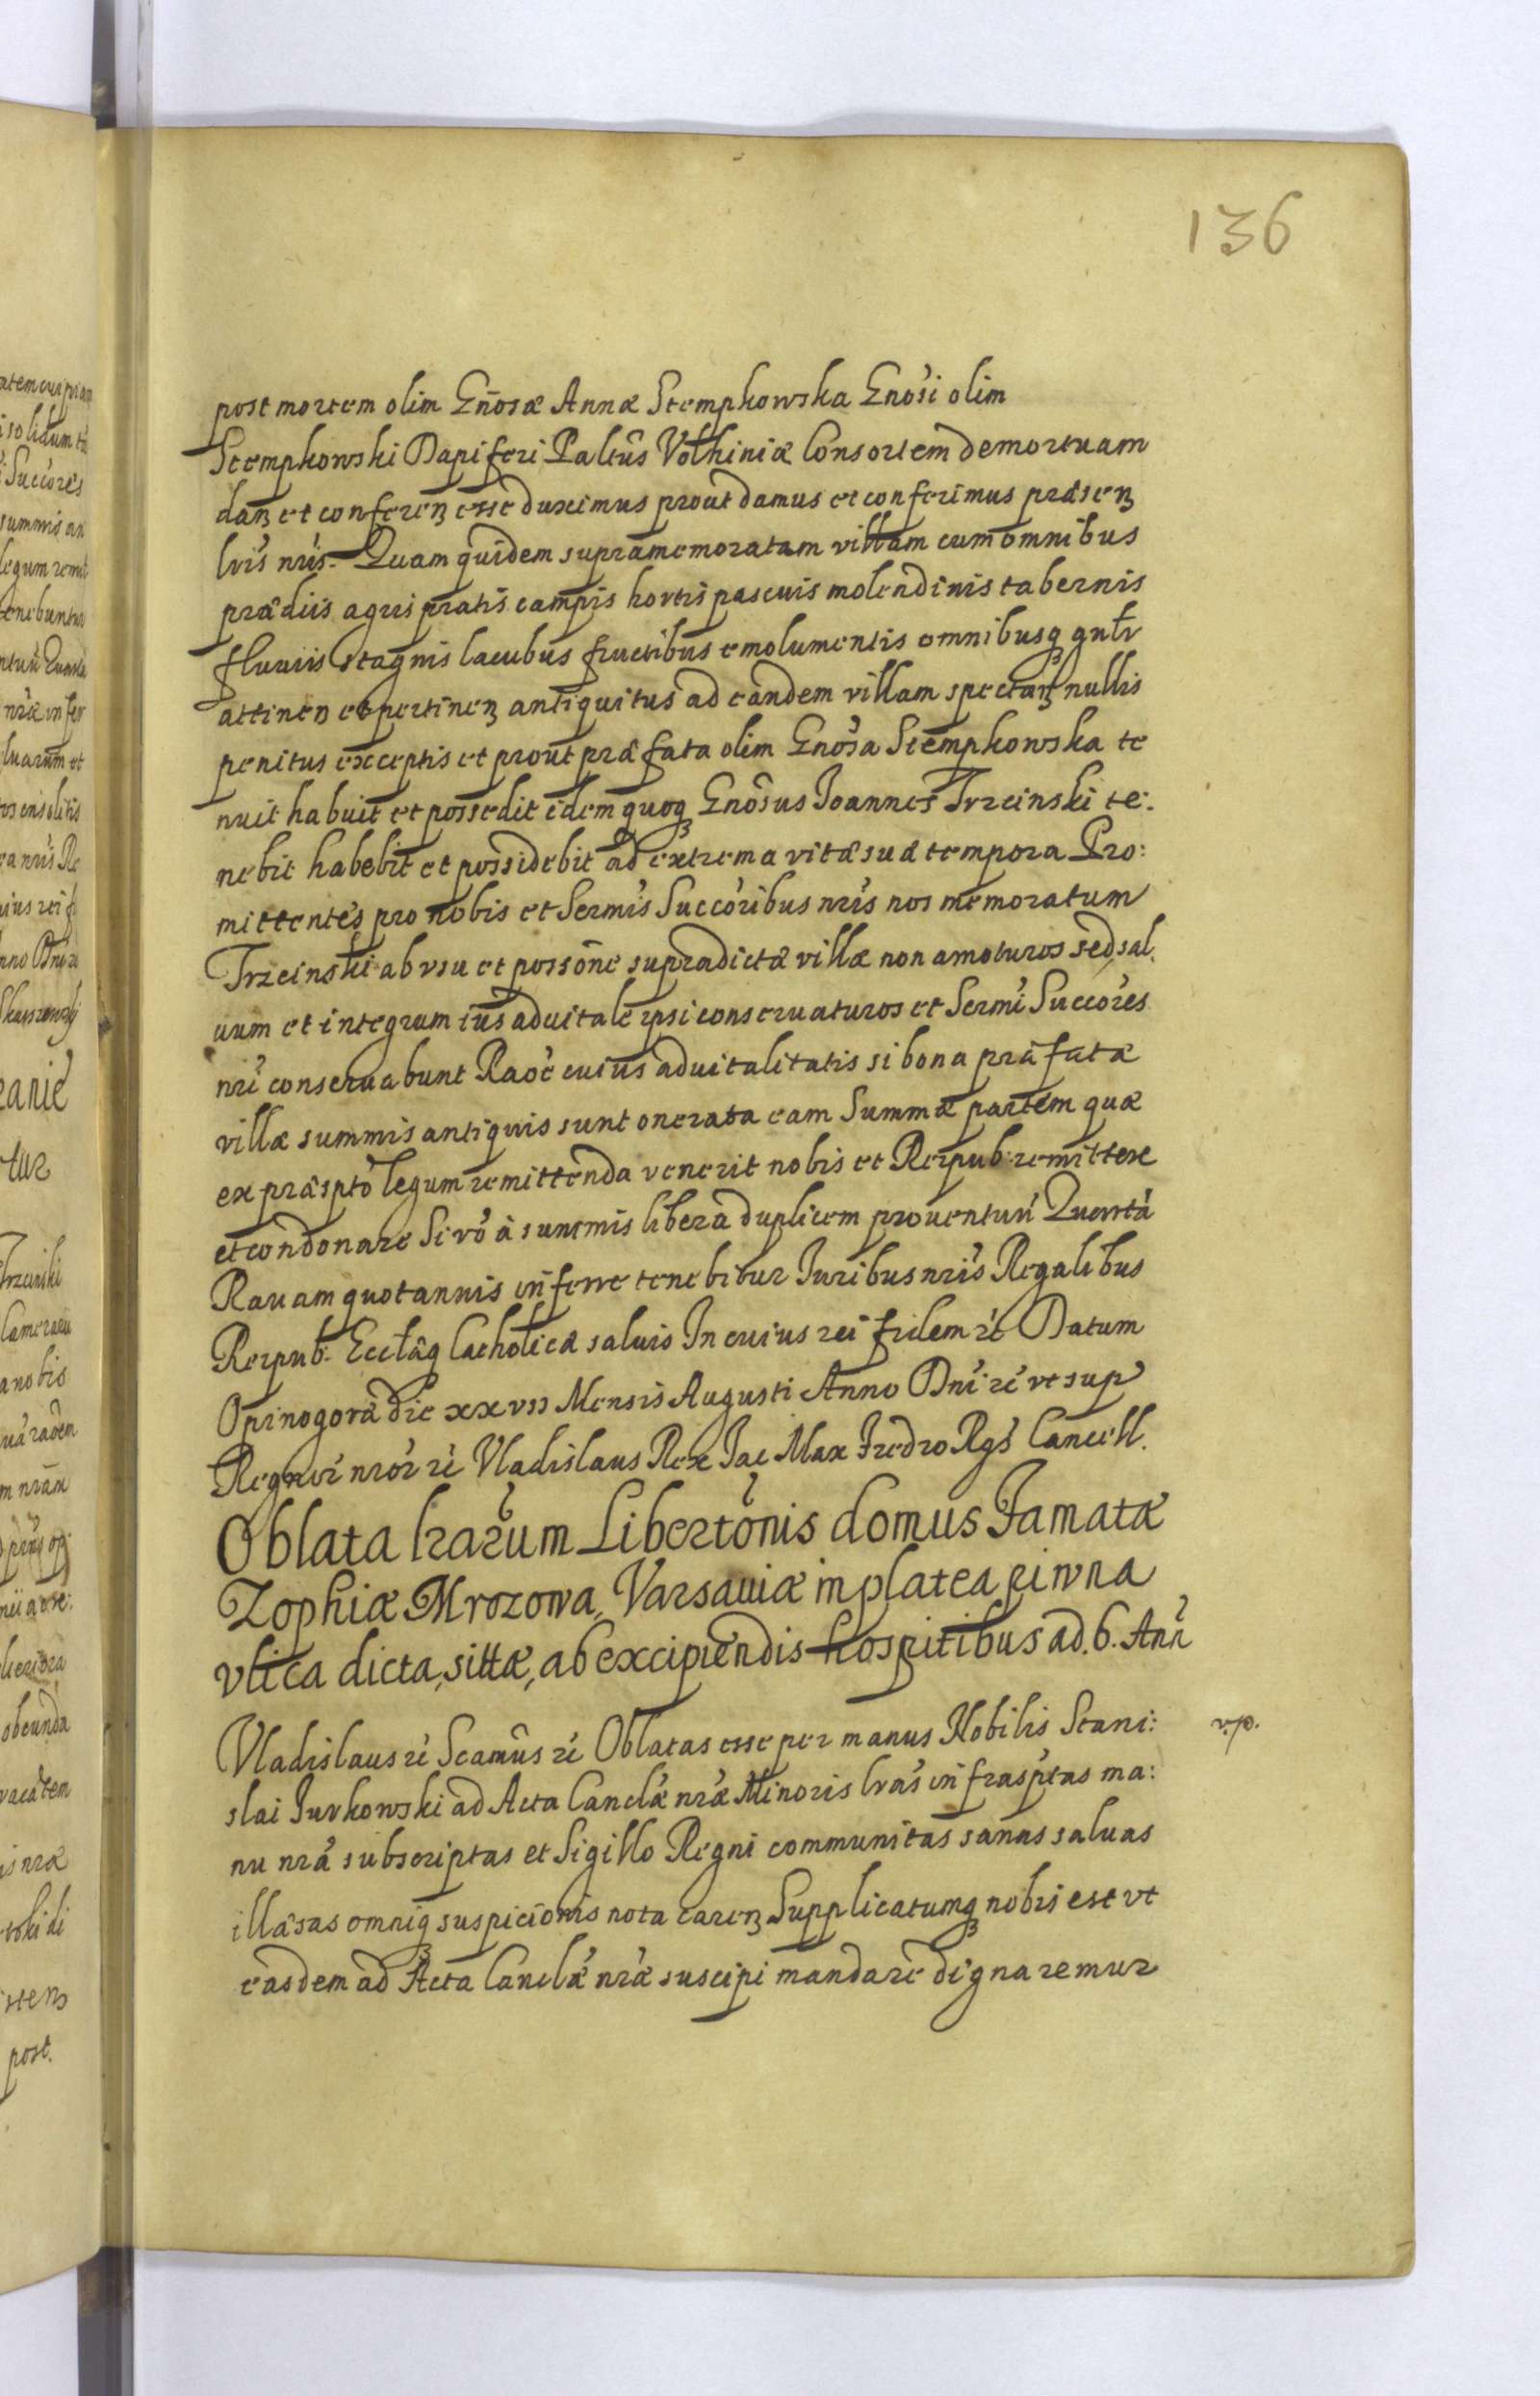 136
post mortem olim Gñosæ Annæ Stempkowska Gnosi olim
Stempkowski Dapiferi Paltûs Volhiniæ Consortem demortuam
danꝫ et conferenꝫ esse duximus prout damus et conferimus præsenꝫ
lrîs nrîs. Quam quidem supramemoratam villam cum omnibus
prædiis agris pratis campis hortis pascuis molendinis tabernis
fluviis stagnis lacubus fructibus emolumentis omnibusqꝫ gnl̃r
attinenꝫ et pertinenꝫ antiquitus ad eandem villam spectanꝫ nullis
penitus exceptis et prout præfata olim Gnosa Stempkowska te
nuit habuit et possedit idem quoqꝫ Gnôsus Joannes Trzcinski te:
nebit habebit et possidebit ad extrema vitæ suæ tempora Pro:
mittentes pro nobis et Sermîs Succoribus nrîs nos memoratum
Trzcinski ab vsu et possõne supradictæ villæ non amoturos sed sal
uum et integrum ius aduitale ipsi conseruaturos et Sermî Succores
nrî conseruabunt Raõe cuius aduitalitatis si bona præfatæ
villæ summis antiquis sunt onerata eam Summæ partem quæ
ex præspto legum remittenda venerit nobis et Reipub: remittere
et condonare Si vô à summis libera duplicem prouentum Quartá
Rauam quotannis inferre tenebitur Iuribus nrîs Regalibus
Reipub: Ecclæqꝫ Catholicæ saluis In cuius rei fidem rè Datum
Opinogoræ die xxvii Mensis Augusti Anno Dni rè vt sup
Regnor nror rè Vladislaus Rex Jac Max Fredro Rgs Cancell.
Oblata lrarum Libertõnis domus Famatæ
Zophiæ Mrozowa, Varsauiæ in platea piwna
vlica dicta, sittæ, ab excipiendis hospitibus ad. 6. Ann
Vladislaus rè Scamûs rè Oblatas esse per manus Nobilis Stani:
v.p.
slai Jurkowski ad Acta Canclæ nræ Minoris lras infrasptas ma:
nu nrá subscriptas et Sigillo Regni communitas sanas saluas
illæsas omniqꝫ suspicionis nota carenꝫ Supplicatumqꝫ nobis est vt
easdem ad Acta Canclæ nræ suscipi mandare dignaremur